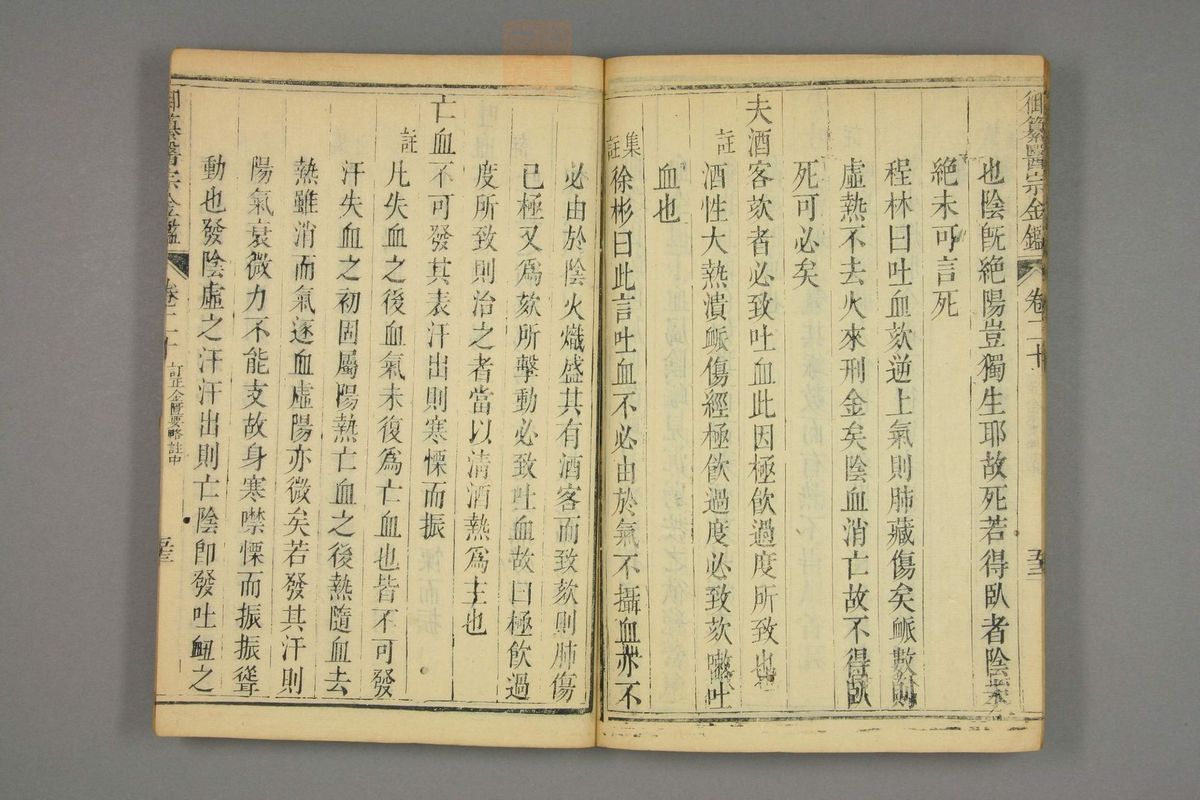 御纂醫宗金鑑 卷二十 至
也陰旣絶陽豈獨生耶故死若得臥者陰未
絶未可言死
程林曰吐血欬逆上氣則肺藏傷矣䘑數則
虛熱不去火來刑金矣陰血消亡故不得臥
死可必矣
夫酒客欬者必致吐血此因極飮過度所致也
註 酒性大熱潰䘑傷經極飮過度必致欬嗽吐
血也
集註 徐彬曰此言吐血不必由於氣不攝血亦不
必由於陰火熾盛其有酒客而致欬則肺傷
已極又爲欬所擊動必致吐血故曰極飮過
度所致則治之者當以清酒熱爲主也
亡血不可發其表汗出則寒慄而振
註 凡失血之後血氣未復爲亡血也皆不可發
汗失血之初固屬陽熱亡血之後熱隨血去
熱雖消而氣逐血虛陽亦微矣若發其汗則
陽氣衰微力不能支故身寒噤慄而振振聳
動也發陰虛之汗汗出則亡陰卽發吐衄之
御纂醫宗金鑑 卷二十 訂正金匱要略註中